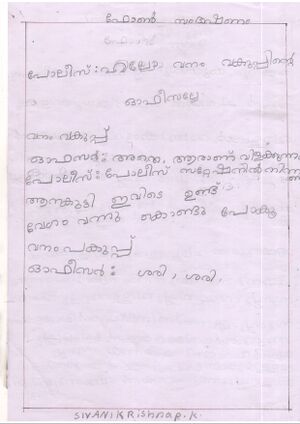 ഫോൺ സംഭാഷണം
പോലീസ് : ഹല്ലോ വനം വകുപ്പിന്റെ
ഓഫീസല്ലേ
വനം വകുപ്പ്
ഓഫസർ : അതെ, ആരാണ് വിളക്കുന്ന
പോലീസ് : പോലീസ് സറ്റേഷനിൽ നിന്ന
ആനകുട്ടി ഇവിടെ ഉണ്ട്
വേഗം വന്നു കൊണ്ടു പോകൂ
വനം പകുപ്പ്
ഓഫീസർ : ശരി, ശരി.
SIVANIKRishnap.K.